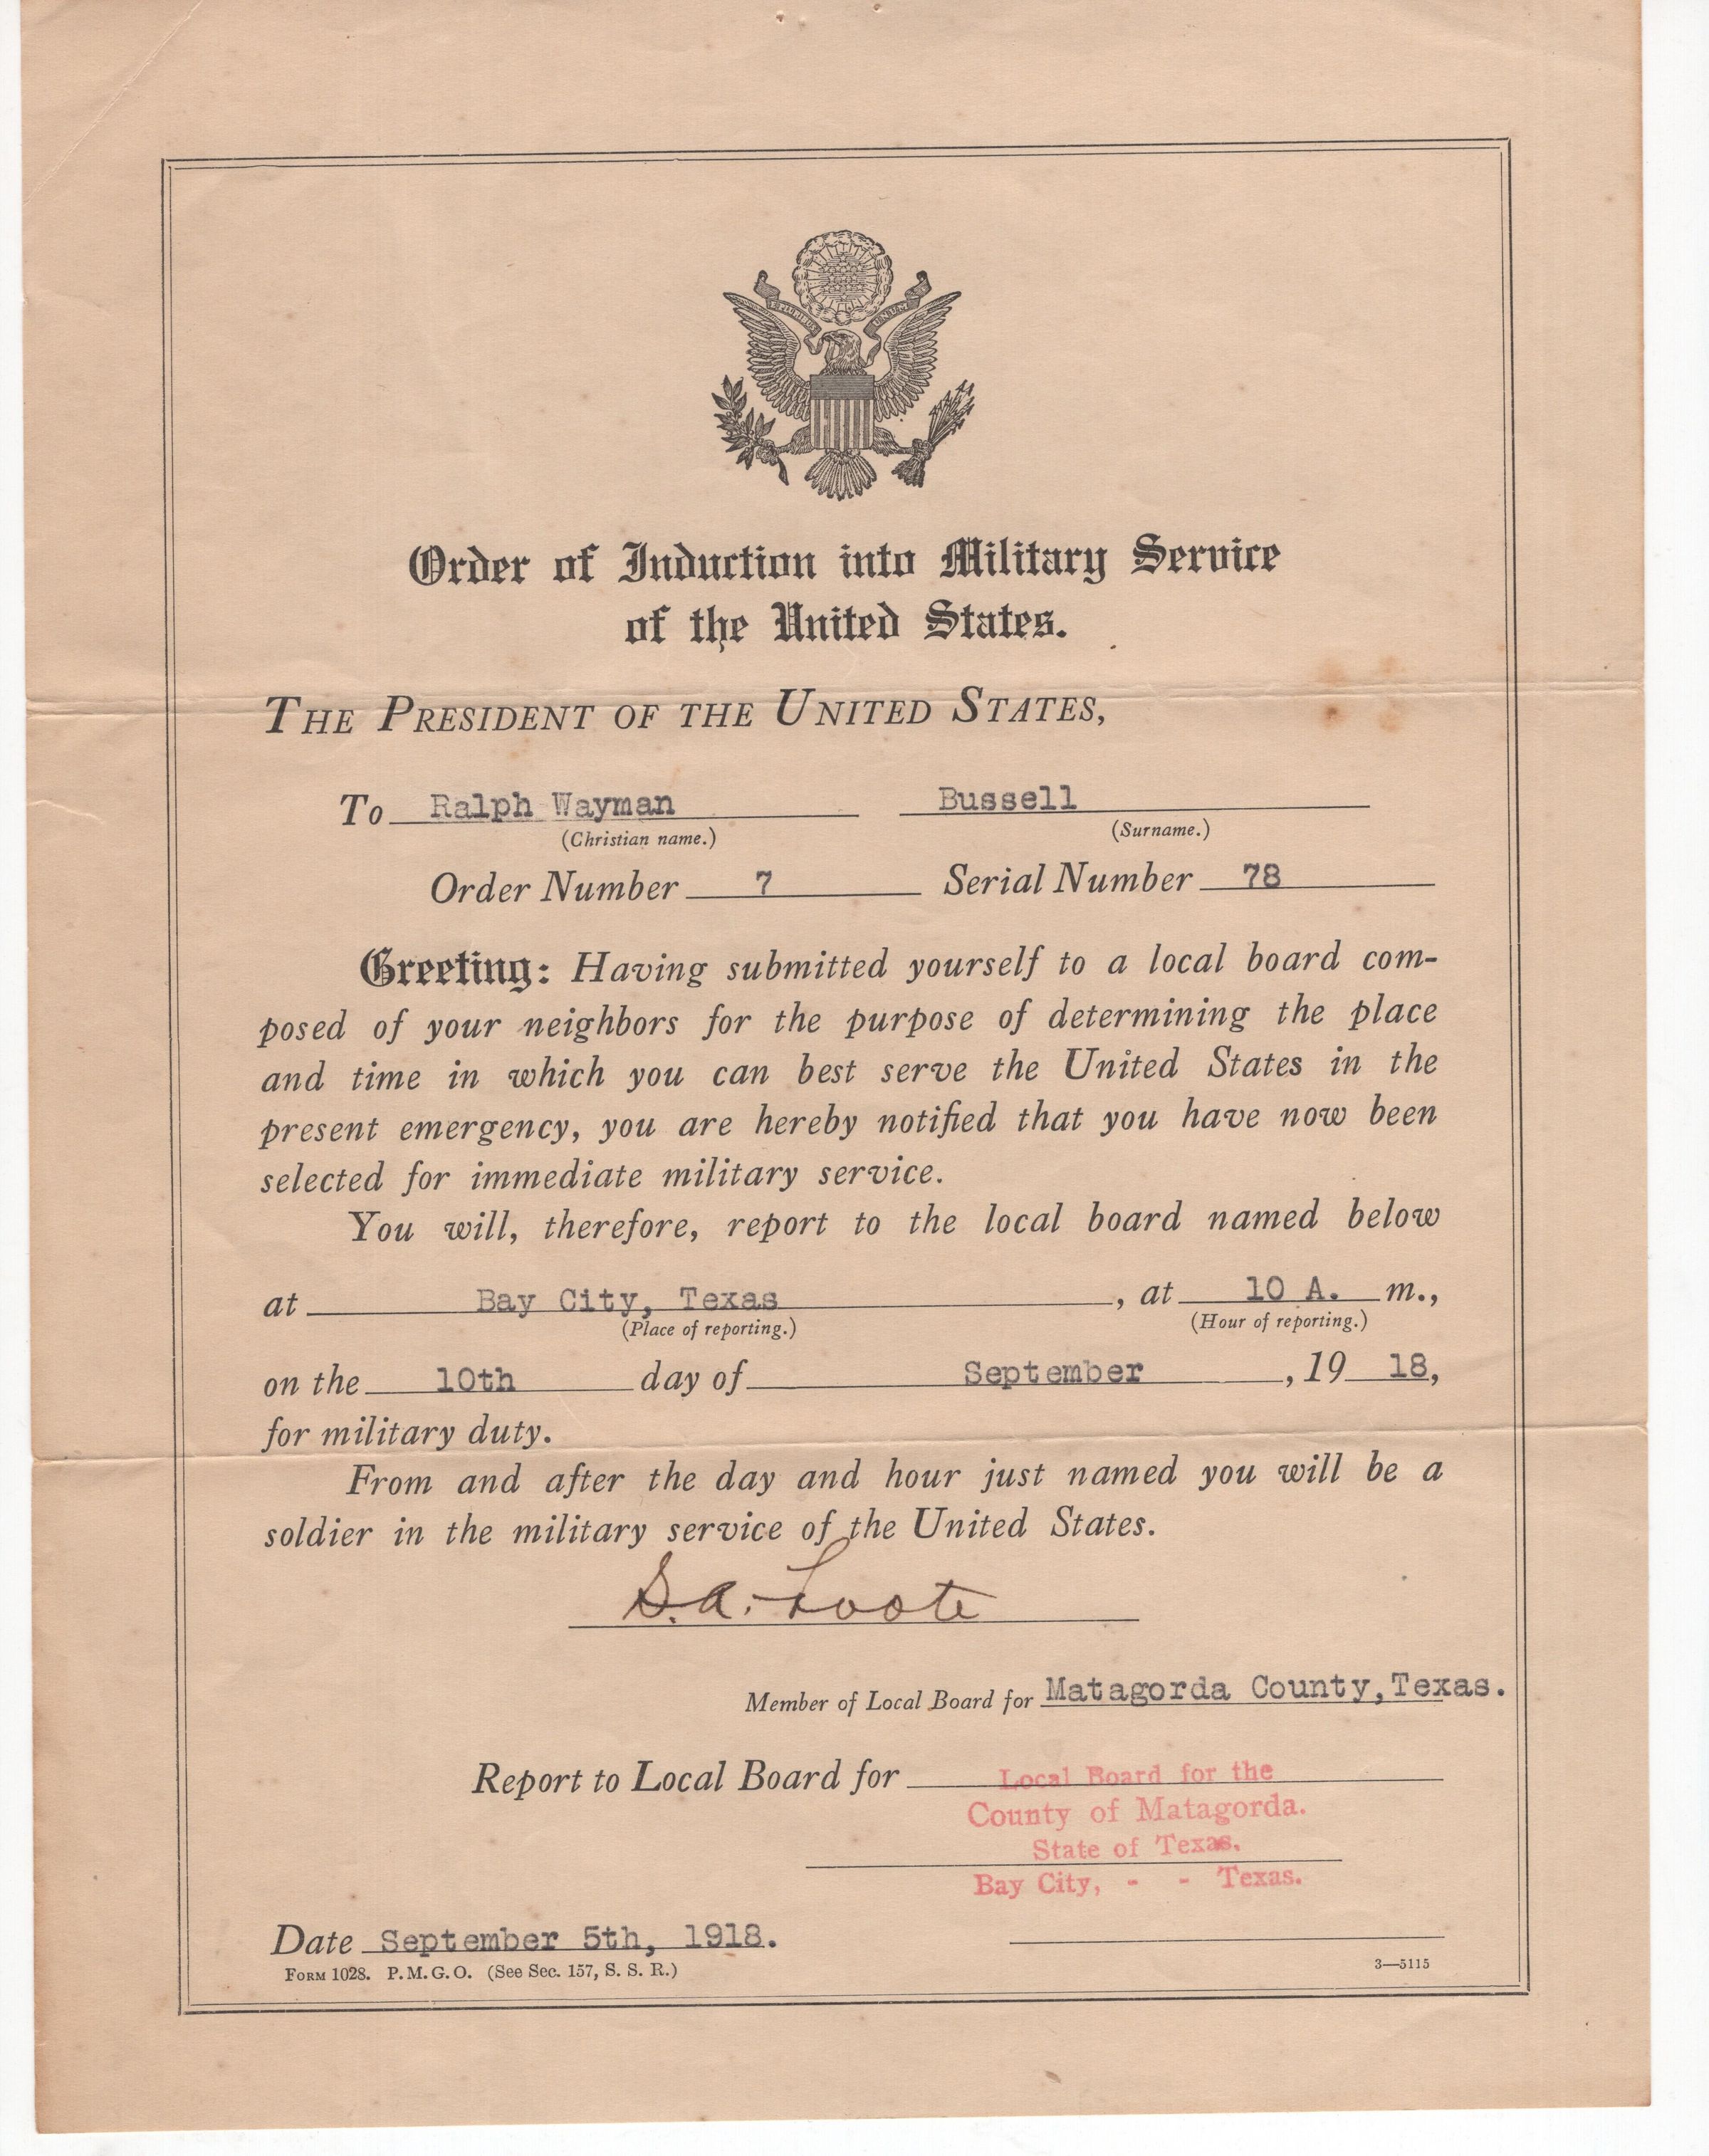 Order of Induction into Military Service
of the United States.
THE PRESIDENT OF THE UNITED STATES,
To Ralph Wayman Bussell
(Christian name.) (Surname.)
Order Number 7 Serial Number 78
Greeting: Having submitted yourself to a local board com-
posed of your neighbors for the purpose of determining the place
and time in which you can best serve the United States in the
present emergency, you are hereby notified that you have now been
selected for immediate military service.
You will, therefore, report to the local board named below
at Bay City, Texas, at 10 A. m.,
(Place of reporting.) (Hour of reporting.)
on the 10th day of September, 19 18,
for military duty.
From and after the day and hour just named you will be a
soldier in the military service of the United States.
S. A. Foote
Member of Local Board for Matagorda County, Texas.
Report to Local Board for Local Board for the
County of Matagorda.
State of Texas.
Bay City, - - Texas.
Date September 5th, 1918.
FORM 1028. P. M. G. O. (See Sec. 157, S. S. R.) 3—5115